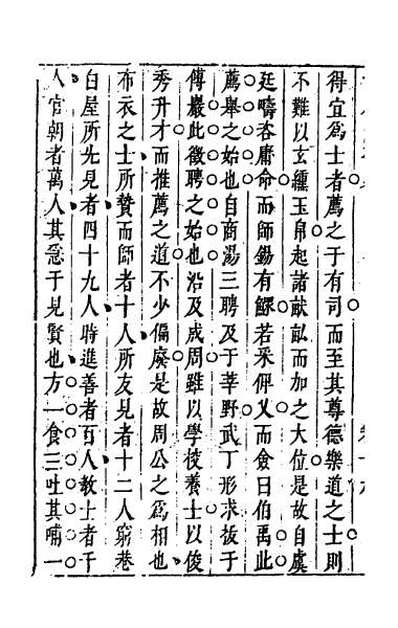 得宜爲士者薦之于有司而至其尊德樂道之士則
不難以玄纁玉帛起諸畎畝而加之大位是故自虞
廷疇咨庸命而師錫有鰥若釆俾乂而僉曰伯禹此
薦舉之始也自商湯三聘及于莘野武丁形求拔于
傅巖此徵聘之始也沿及成周雖以學校養士以俊
秀升才而推薦之道不少偏廢是故周公之爲相也
布衣之士所贄而師者十人所友見者十二人窮巷
白屋所先見者四十九人時進善者百人教士者千
人官朝者萬人其急于見賢也方一食三吐其哺一